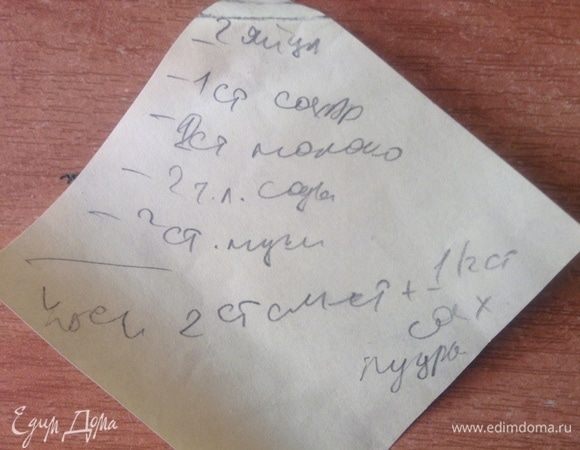 – 2 яйца
– 1 ст сахар
– ст молоко
– 2 ч.л. соды
– 2 ст. муки
2 ст смет + 1 ст
сах
пудры
Едим Дома
www.edimdoma.ru